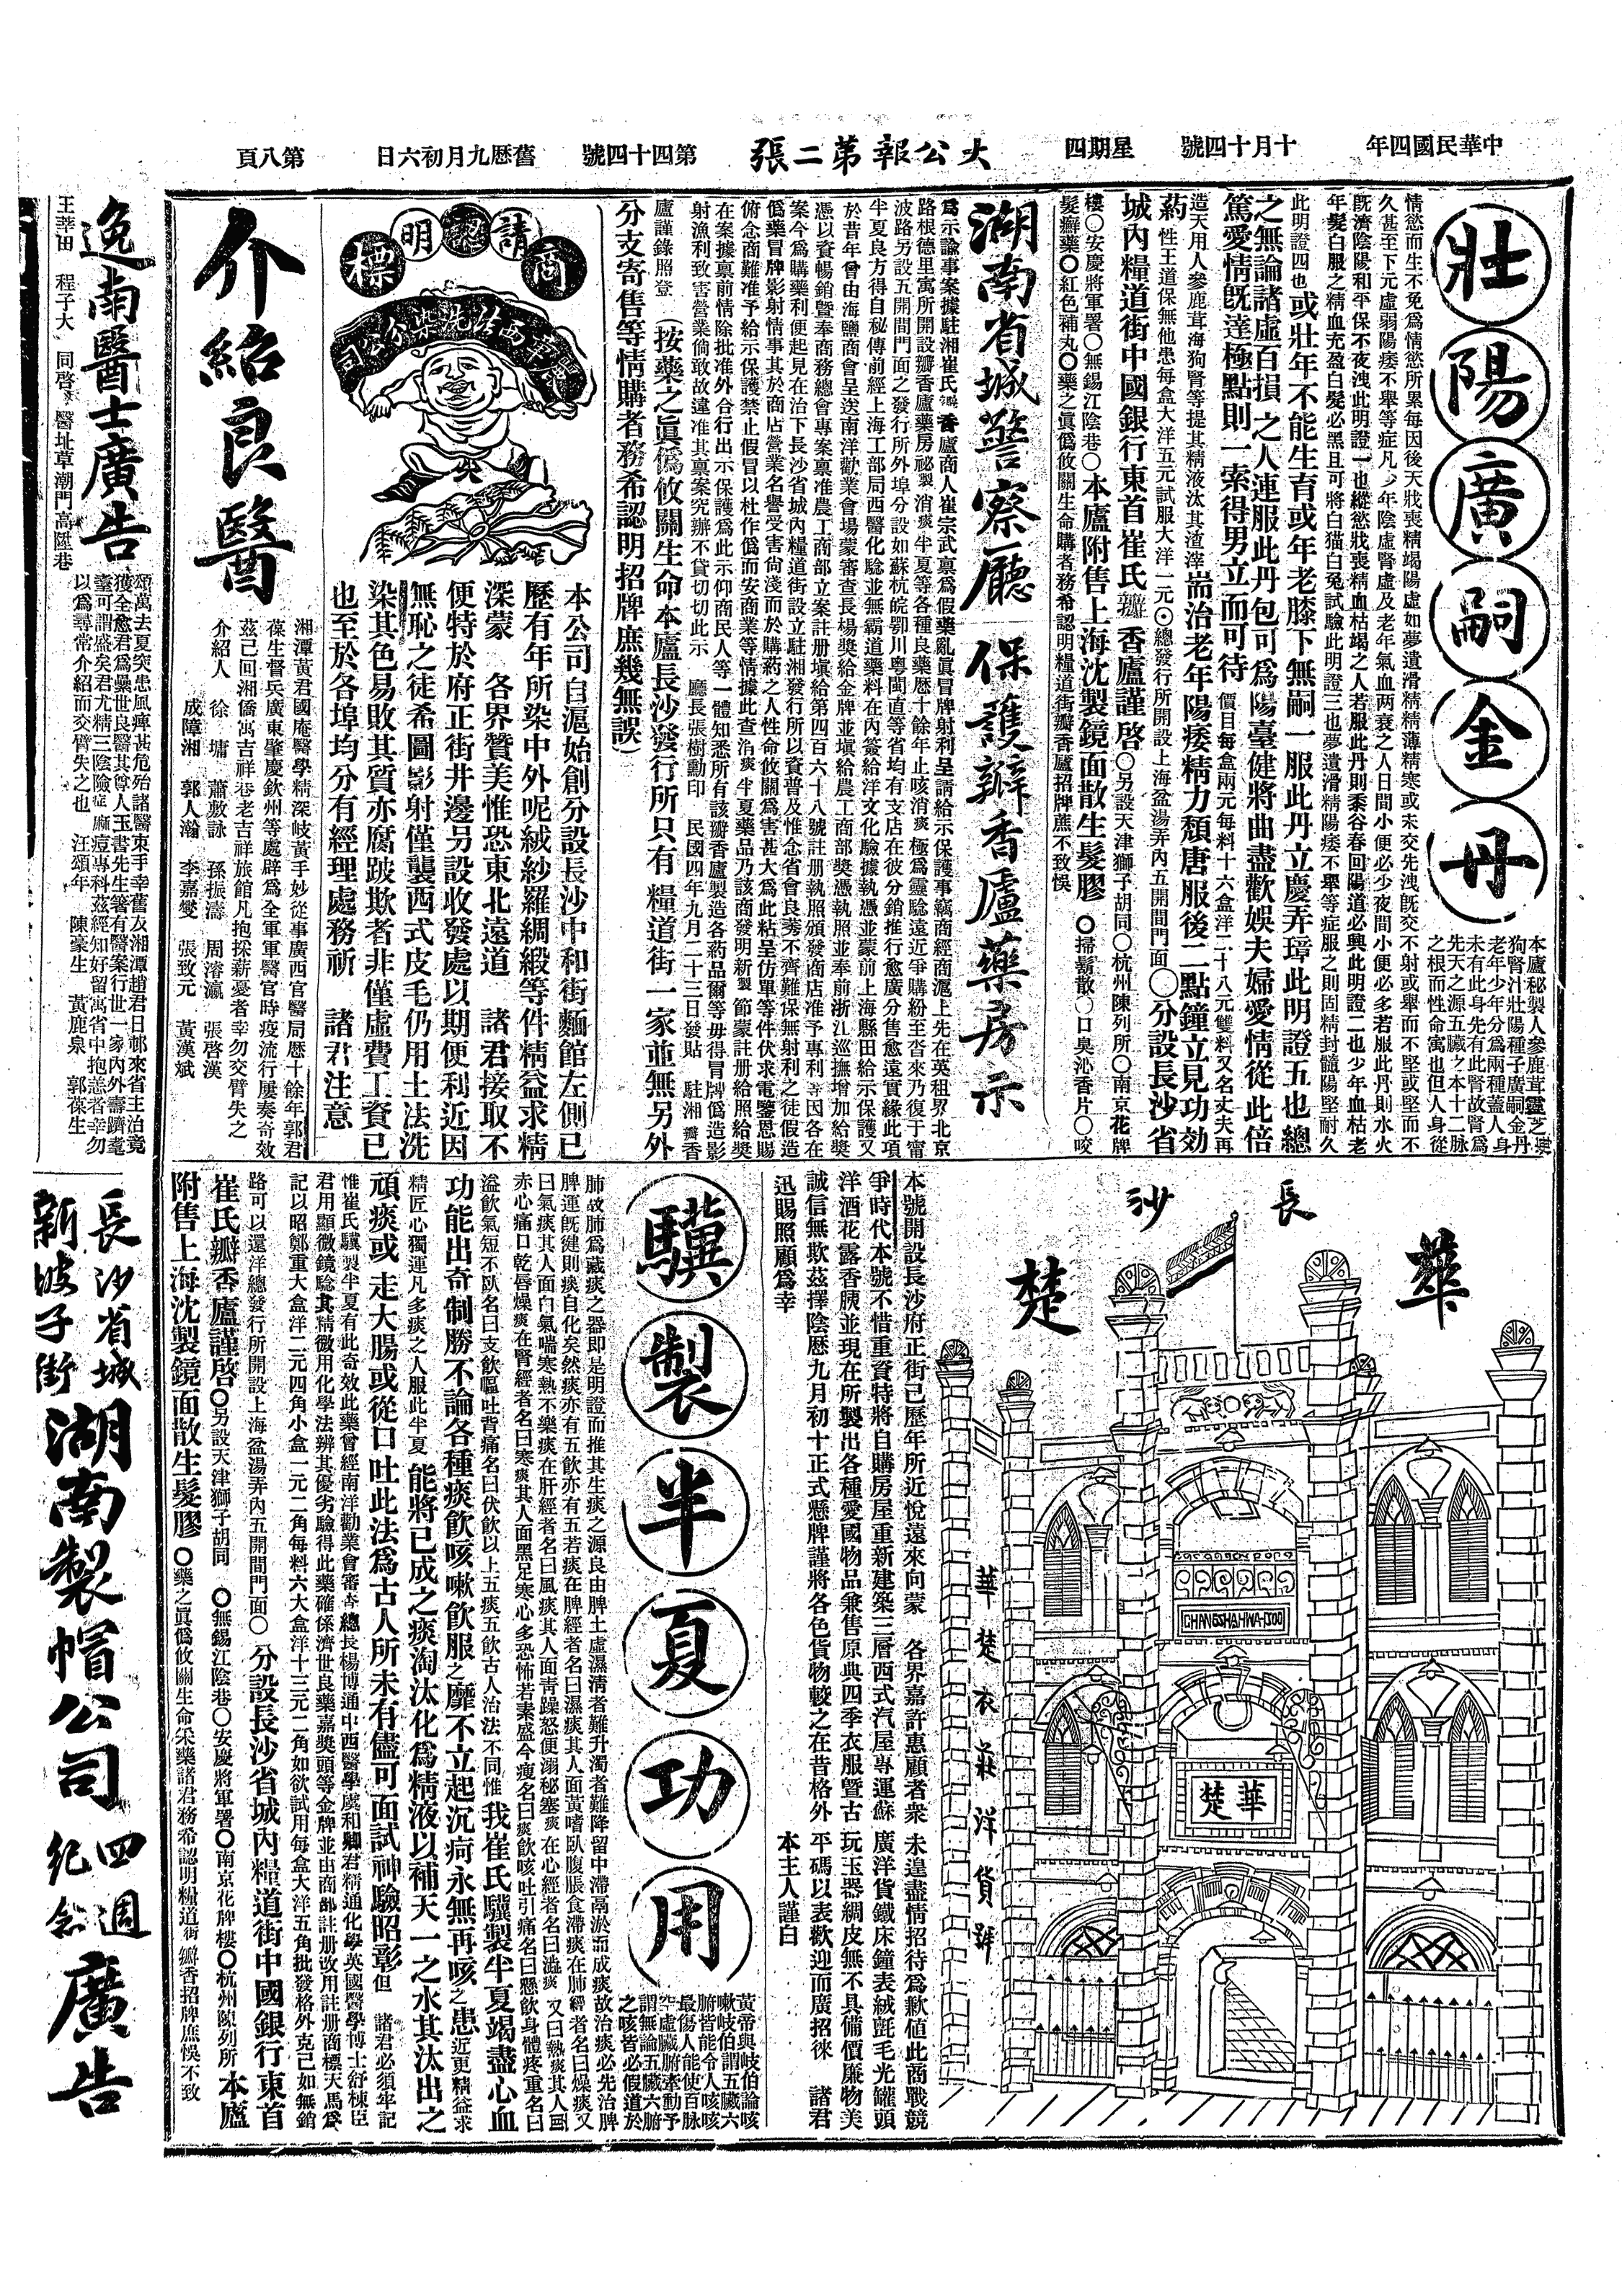 中華民國四年
十月十四號
星期四
大公報第二張
第四十四號
舊歷九月初六日
第八頁
壯陽廣嗣金丹
本廬秘製人參鹿茸靈芝
狗腎汁壯陽種子廣嗣金丹
老年少年分爲兩種蓋人身
未有此身先有此腎故腎爲
先天之源五臟之本十二脈
之根而性命寓也但人身從
情慾而生不免爲情慾所累每因後天戕喪精竭陽虛如夢遺滑精精薄精寒或未交先洩旣交不射或舉而不堅或堅而不
久甚至下元虛弱陽痿不舉等症凡少年陰虛腎虛及老年氣血兩衰之人日間小便必少夜間小便必多若服此丹則水火
旣濟陰陽和平保不夜洩此明證一也縱慾戕喪精血枯竭之人若服此丹則黍谷春回陽道必興此明證二也少年血枯老
年髮白服之精血充盈白髮必黑且可將白猫白兔試驗此明證三也夢遺滑精陽痿不舉等症服之則固精封髓陽堅耐久
此明證四也或壯年不能生育或年老膝下無嗣一服此丹立慶弄璋此明證五也總
之無論諸虛百損之人連服此丹包可爲陽臺健將曲盡歡娛夫婦愛情從此倍
篤愛情旣達極點則一索得男立而可待 價目每盒兩元每料十六盒洋二十八元雙料又名丈夫再
造天用人參鹿茸海狗腎等提其精液汰其渣滓 耑治老年陽痿精力頹唐服後二點鐘立見功効
葯 性王道保無他患每盒大洋五元試服大洋一元⊙總發行所開設上海盆湯弄內五開間門面○分設長沙省
城內糧道街中國銀行東首崔氏瓣香廬謹啓○另設天津獅子胡同○杭州陳列所○南京花牌
樓○安慶將軍署○無錫江陰巷○本廬附售上海沈製鏡面散生髮膠 ○掃鬍散○口臭沁香片○咬
髮癬藥○紅色補丸○藥之眞僞攸關生命購者務希認明糧道街瓣香廬招牌庶不致悞
湖南省城警察廳 保護瓣香廬藥房示
爲示諭事案據駐湘崔氏瓣香廬商人崔宗武稟爲假藥亂眞冒牌射利呈請給示保護事竊商經商滬上先在英租界北京
路根德里寓所開設瓣香廬藥房祕製消痰半夏等各種良藥歷十餘年止咳消痰極爲靈騐遠近爭購紛至沓來乃復于甯
波路另設五開間門面之發行所外埠分設如蘇杭皖鄂川粵閩直等省均有支店在彼分銷推行愈廣分售愈遠實緣此項
半夏良方得自秘傳前經上海工部局西醫化騐並無霸道藥料在內簽給洋文化驗據執憑並蒙前上海縣田給示保護又
於昔年曾由海鹽商會呈送南洋勸業會塲蒙審查長楊獎給金牌並塡給農工商部獎憑執照並奉前浙江巡撫增加給獎
憑以資暢銷暨奉商務總會專案稟准農工商部立案註册塡給第四百六十八號註册執照頒發商店准予專利等因各在
案今爲購藥利便起見在治下長沙省城內糧道街設立駐湘發行所以資普及惟念省會良莠不齊難保無射利之徒假造
僞藥冒牌影射情事其於商店營業名譽受害尙淺而於購葯之人性命攸關爲害甚大爲此粘呈仿單等件伏求電鑒恩賜
俯念商難准予給示保護禁止假冒以杜作僞而安商業等情據此查消痰半夏藥品乃該商發明新製節蒙註册給照給獎
在案據稟前情除批准外合行出示保護爲此示仰商民人等一體知悉所有該瓣香廬製造各葯品爾等毋得冒牌僞造影
射漁利致害營業倘敢故違准其稟案究辦不貸切切此示 廳長張樹勳印 民國四年九月二十三日發貼 駐湘瓣香
廬謹錄照登 （按藥之眞僞攸關生命本廬長沙發行所只有糧道街一家並無另外
分支寄售等情購者務希認明招牌庶幾無誤）
商
請
黎
明
標
本公司自滬始創分設長沙中和街麵館左側已
歷有年所染中外呢絨紗羅綢緞等件精益求精
深蒙 各界贊美惟恐東北遠道 諸君接取不
便特於府正街井邊另設收發處以期便利近因
無恥之徒希圖影射僅襲西式皮毛仍用土法洗
染其色易敗其質亦腐跛欺者非僅虛費工資已
也至於各埠均分有經理處務祈 諸君注意
介紹良醫
湘潭黃君國庵醫學精深岐黃手妙從事廣西官醫局歷十餘年郭君
葆生督兵廣東肇慶欽州等處辟爲全軍軍醫官時疫流行屢奏奇效
茲已回湘僑寓吉祥巷老吉祥旅館凡抱採薪憂者幸勿交臂失之
介紹人 徐墉 蕭敷詠 孫振濤 周濬瀛 張啓漢
成障湘 郭人瀚 李嘉燮 張致元 黃漢斌
逸南醫士廣告
頌萬去夏突患風痺甚危殆諸醫束手幸舊友湘潭趙君日邨來省主治竟
獲全愈君爲纍世良醫其尊人玉書先生箸有醫案行世一家內外壽躋耄
耋可謂盛矣君尤精三陰險症麻痘專科茲經知好留寓省中抱恙者幸勿
以爲尋常介紹而交臂失之也 汪頌年 陳豪生 黃鹿泉 郭葆生
王莘田 程子大 同啓 醫址草潮門高陞巷
長沙 華楚
華楚衣莊洋貨號
CHANGSHAHWA-TSOO
華楚
本號開設長沙府正街已歷年所近悅遠來向蒙 各界嘉許惠顧者衆 未遑盡情招待爲歉値此商戰競
爭時代本號不惜重資特將自購房屋重新建築三層西式汽屋專運蘇 廣洋貨鐵床鐘表絨氈毛光罐頭
洋酒花露香胰並現在所製出各種愛國物品兼售原典四季衣服暨古 玩玉器綢皮無不具備價廉物美
誠信無欺茲擇陰歷九月初十正式懸牌謹將各色貨物較之在昔格外 平碼以表歡迎而廣招徠 諸君
迅賜照顧爲幸 本主人謹白
驥製半夏功用
黃帝與岐伯論咳
嗽岐伯謂五臟六
腑皆能令人咳咳
最傷人能使百脈
空虛臟腑牽動予
謂無論五臟六腑
之咳皆必假道於
肺故肺爲藏痰之器即是明證而推其生痰之源良由脾土虛濕淸者難升濁者難降留中滯鬲淤而成痰故治痰必先治脾
脾運旣健則痰自化矣然痰亦有五飲亦有五若痰在脾經者名曰濕痰其人面黃嗜臥腹脹食滯痰在肺經者名曰燥痰又
曰氣痰其人面白氣喘寒熱不樂痰在肝經者名曰風痰其人面靑躁怒便溺秘塞痰在心經者名曰熱痰又曰熱痰其人面
赤心痛口乾唇燥痰在腎經者名曰寒痰其人面黑足寒心多恐怖若素盛今瘦名曰痰飲咳吐引痛名曰懸飲身體疼重名曰
溢飲氣短不臥名曰支飲嘔吐背痛名曰伏飲以上五痰五飲古人治法不同惟我崔氏驥製半夏竭盡心血
功能出奇制勝不論各種痰飲咳嗽飲服之靡不立起沉疴永無再咳之患近更精益求
精匠心獨運凡多痰之人服此半夏能將已成之痰淘汰化爲精液以補天一之水其汰出之
頑痰或走大腸或從口吐此法爲古人所未有儘可面試神驗昭彰但 諸君必須牢記
惟崔氏驥製半夏有此奇效此藥曾經南洋勸業會審查總長楊博通中西醫學虞和卿君精通化學英國醫學博士舒棟臣
君用顯微鏡騐其精微用化學法辨其優劣驗得此藥確係濟世良藥嘉獎頭等金牌並由商部註册改用註册商標天馬爲
記以昭鄭重大盒洋二元四角小盒一元二角每料六大盒洋十三元二角如欲試用每盒大洋五角批發格外克己如無銷
路可以還洋總發行所開設上海盆湯弄內五開間門面○分設長沙省城內糧道街中國銀行東首
崔氏瓣香廬謹啓○另設天津獅子胡同 ○無錫江陰巷○安慶將軍署○南京花牌樓○杭州陳列所 本廬
附售上海沈製鏡面散生髮膠 ○藥之眞僞攸關生命采藥諸君務希認明糧道街瓣香招牌庶悞不致
長沙省城
新坡子街
湖南製帽公司
四週
紀念
廣告